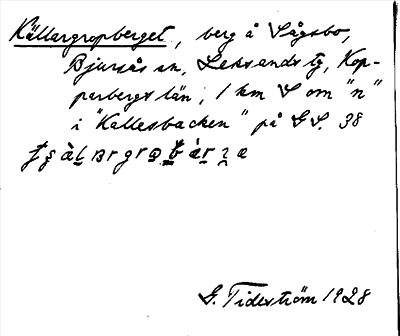 Källargropberget, berg å Sågsbo,
Bjursås sn, Leksands tg, Kop-
parbergs län, 1 km S om "n"
i "Kallesbacken" på GS. 38
G. Tideström 1928